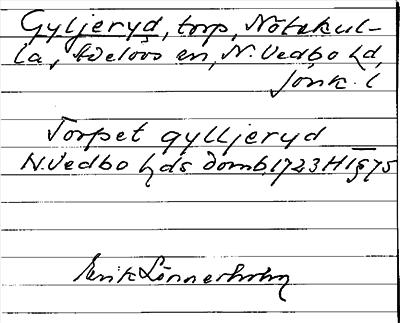 Gyljeryd, torp, Nötekul-
la, Adelövs sn, N. Vedbo hd,
Jönk. l
Torpet gylljeryd
N. Vedbo hds domb. 1723 HT § 75
Erik Lönnerholm